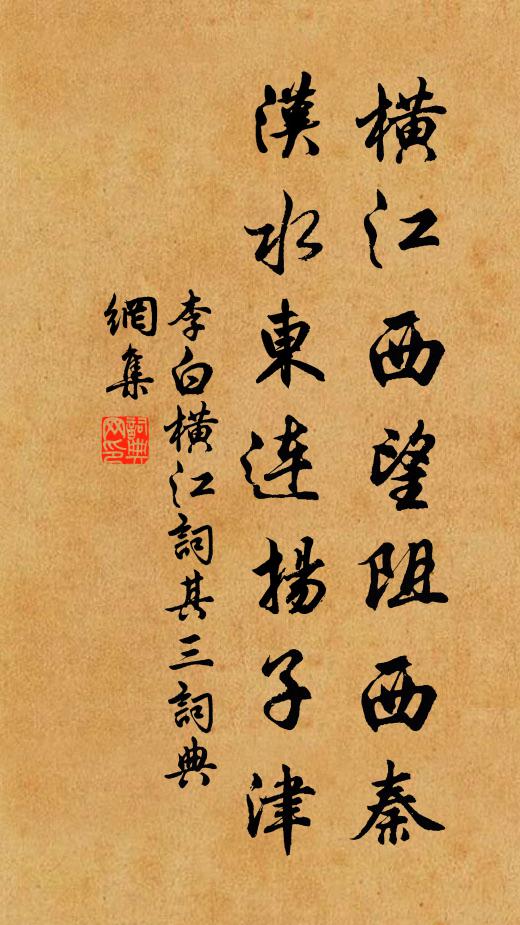 橫江西望阻西秦
漢水東連揚子津
李白橫江詞其三詞典
網集
詞典網印